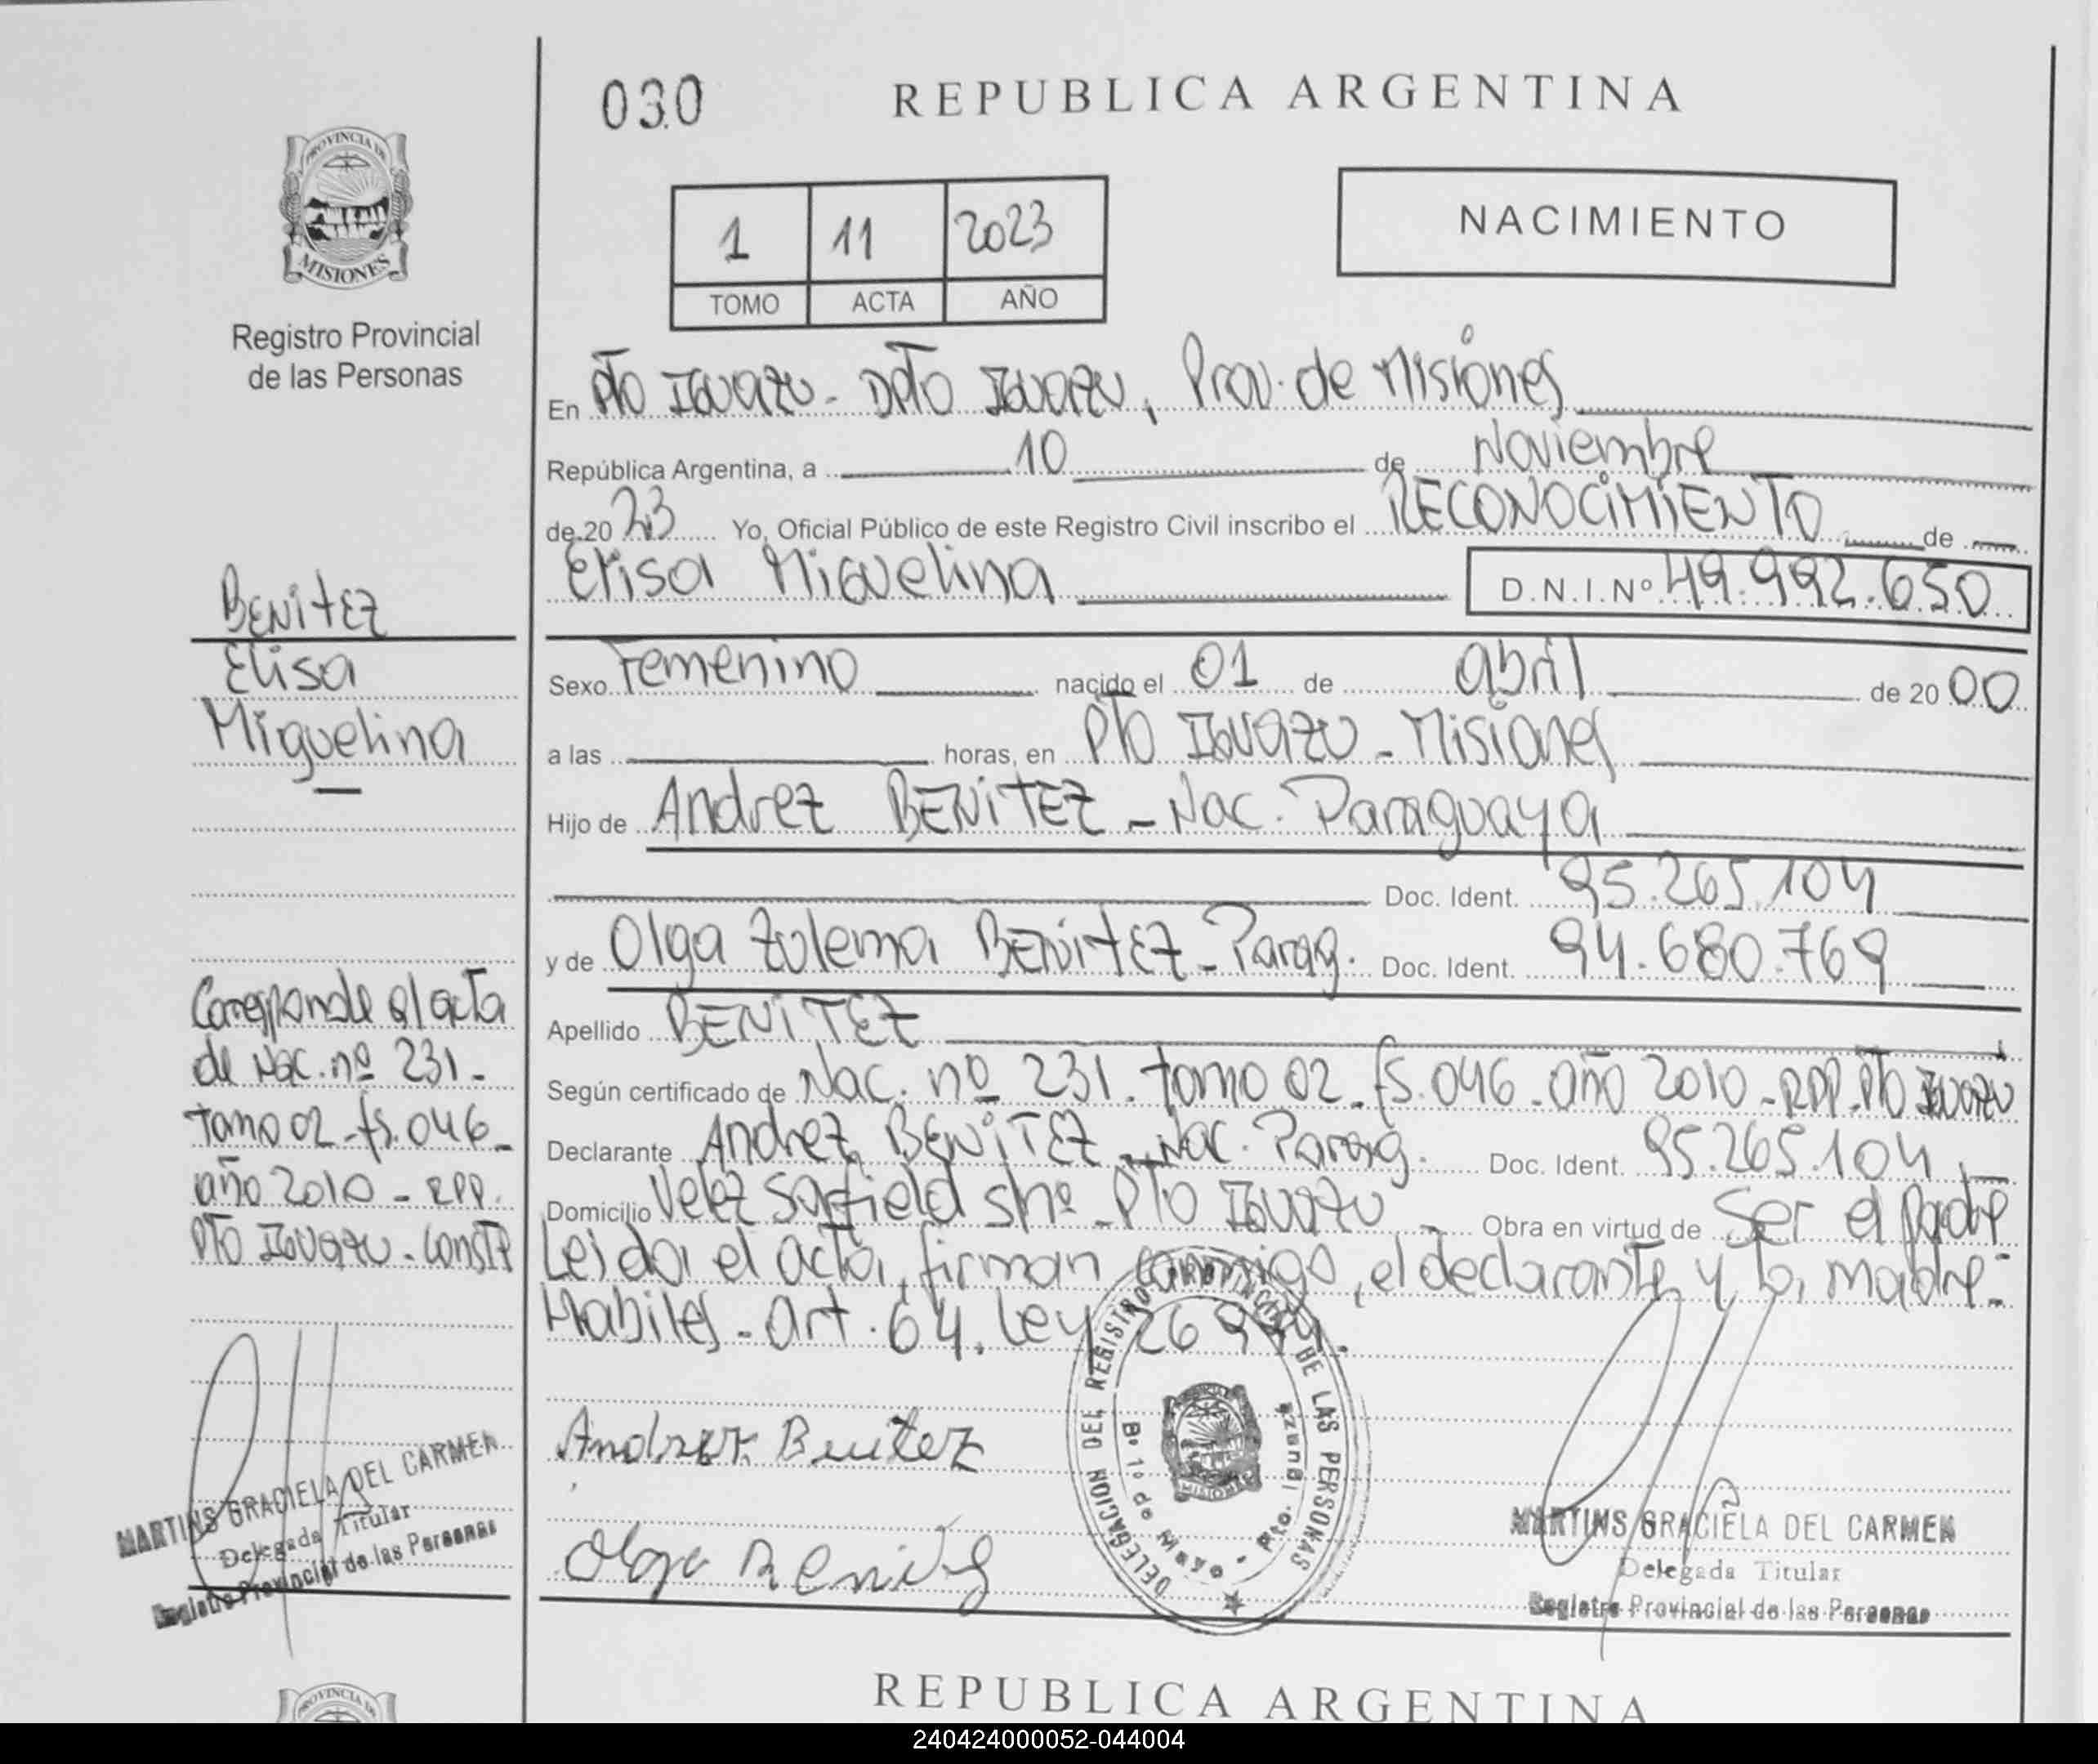 030
REPUBLICA ARGENTINA
PROVINCIA DE
MISIONES
Registro Provincial
de las Personas
1 11 2023
TOMO ACTA AÑO
NACIMIENTO
En Pto Iguazu - Dpto Iguazu, Prov. de Misiones
República Argentina, a 10 de Noviembre
de 2023 Yo, Oficial Público de este Registro Civil inscribo el RECONOCIMIENTO de
Elisa Miguelina D.N.I.Nº 49.992.650
BENITEZ
Elisa
Miguelina
Sexo Femenino nacido el 01 de abril de 2000
a las horas, en Pto Iguazu - Misiones
Hijo de Andrez BENITEZ - Nac. Paraguaya
Doc. Ident. 95.265.104
y de Olga Zulema BENITEZ - Parag. Doc. Ident. 94.680.769
Apellido BENITEZ
Según certificado de Nac. nº 231. tomo 02 - fs. 046 - año 2010 - RPP. Pto Iguazu
Declarante Andrez BENITEZ - Nac. Parag. Doc. Ident. 95.265.104
Domicilio Velez Sarfield s/nº - Pto Iguazu Obra en virtud de Ser el padre
Leida el acta, firman conmigo, el declarante y la madre.
Habiles - art. 64. Ley 26.994.
Corresponde al acta
de Nac. nº 231 -
tomo 02 - fs. 046 -
año 2010 - RPP.
Pto Iguazu - Conste
Andrez Benitez
Olga Benitez
DELEGACION DEL REGISTRO PROVINCIAL DE LAS PERSONAS
Bº 1º de Mayo - Pto. Iguazu
MARTINS GRACIELA DEL CARMEN
Delegada Titular
Registro Provincial de las Personas
MARTINS GRACIELA DEL CARMEN
Delegada Titular
Registro Provincial de las Personas
PROVINCIA DE
REPUBLICA ARGENTINA
240424000052-044004